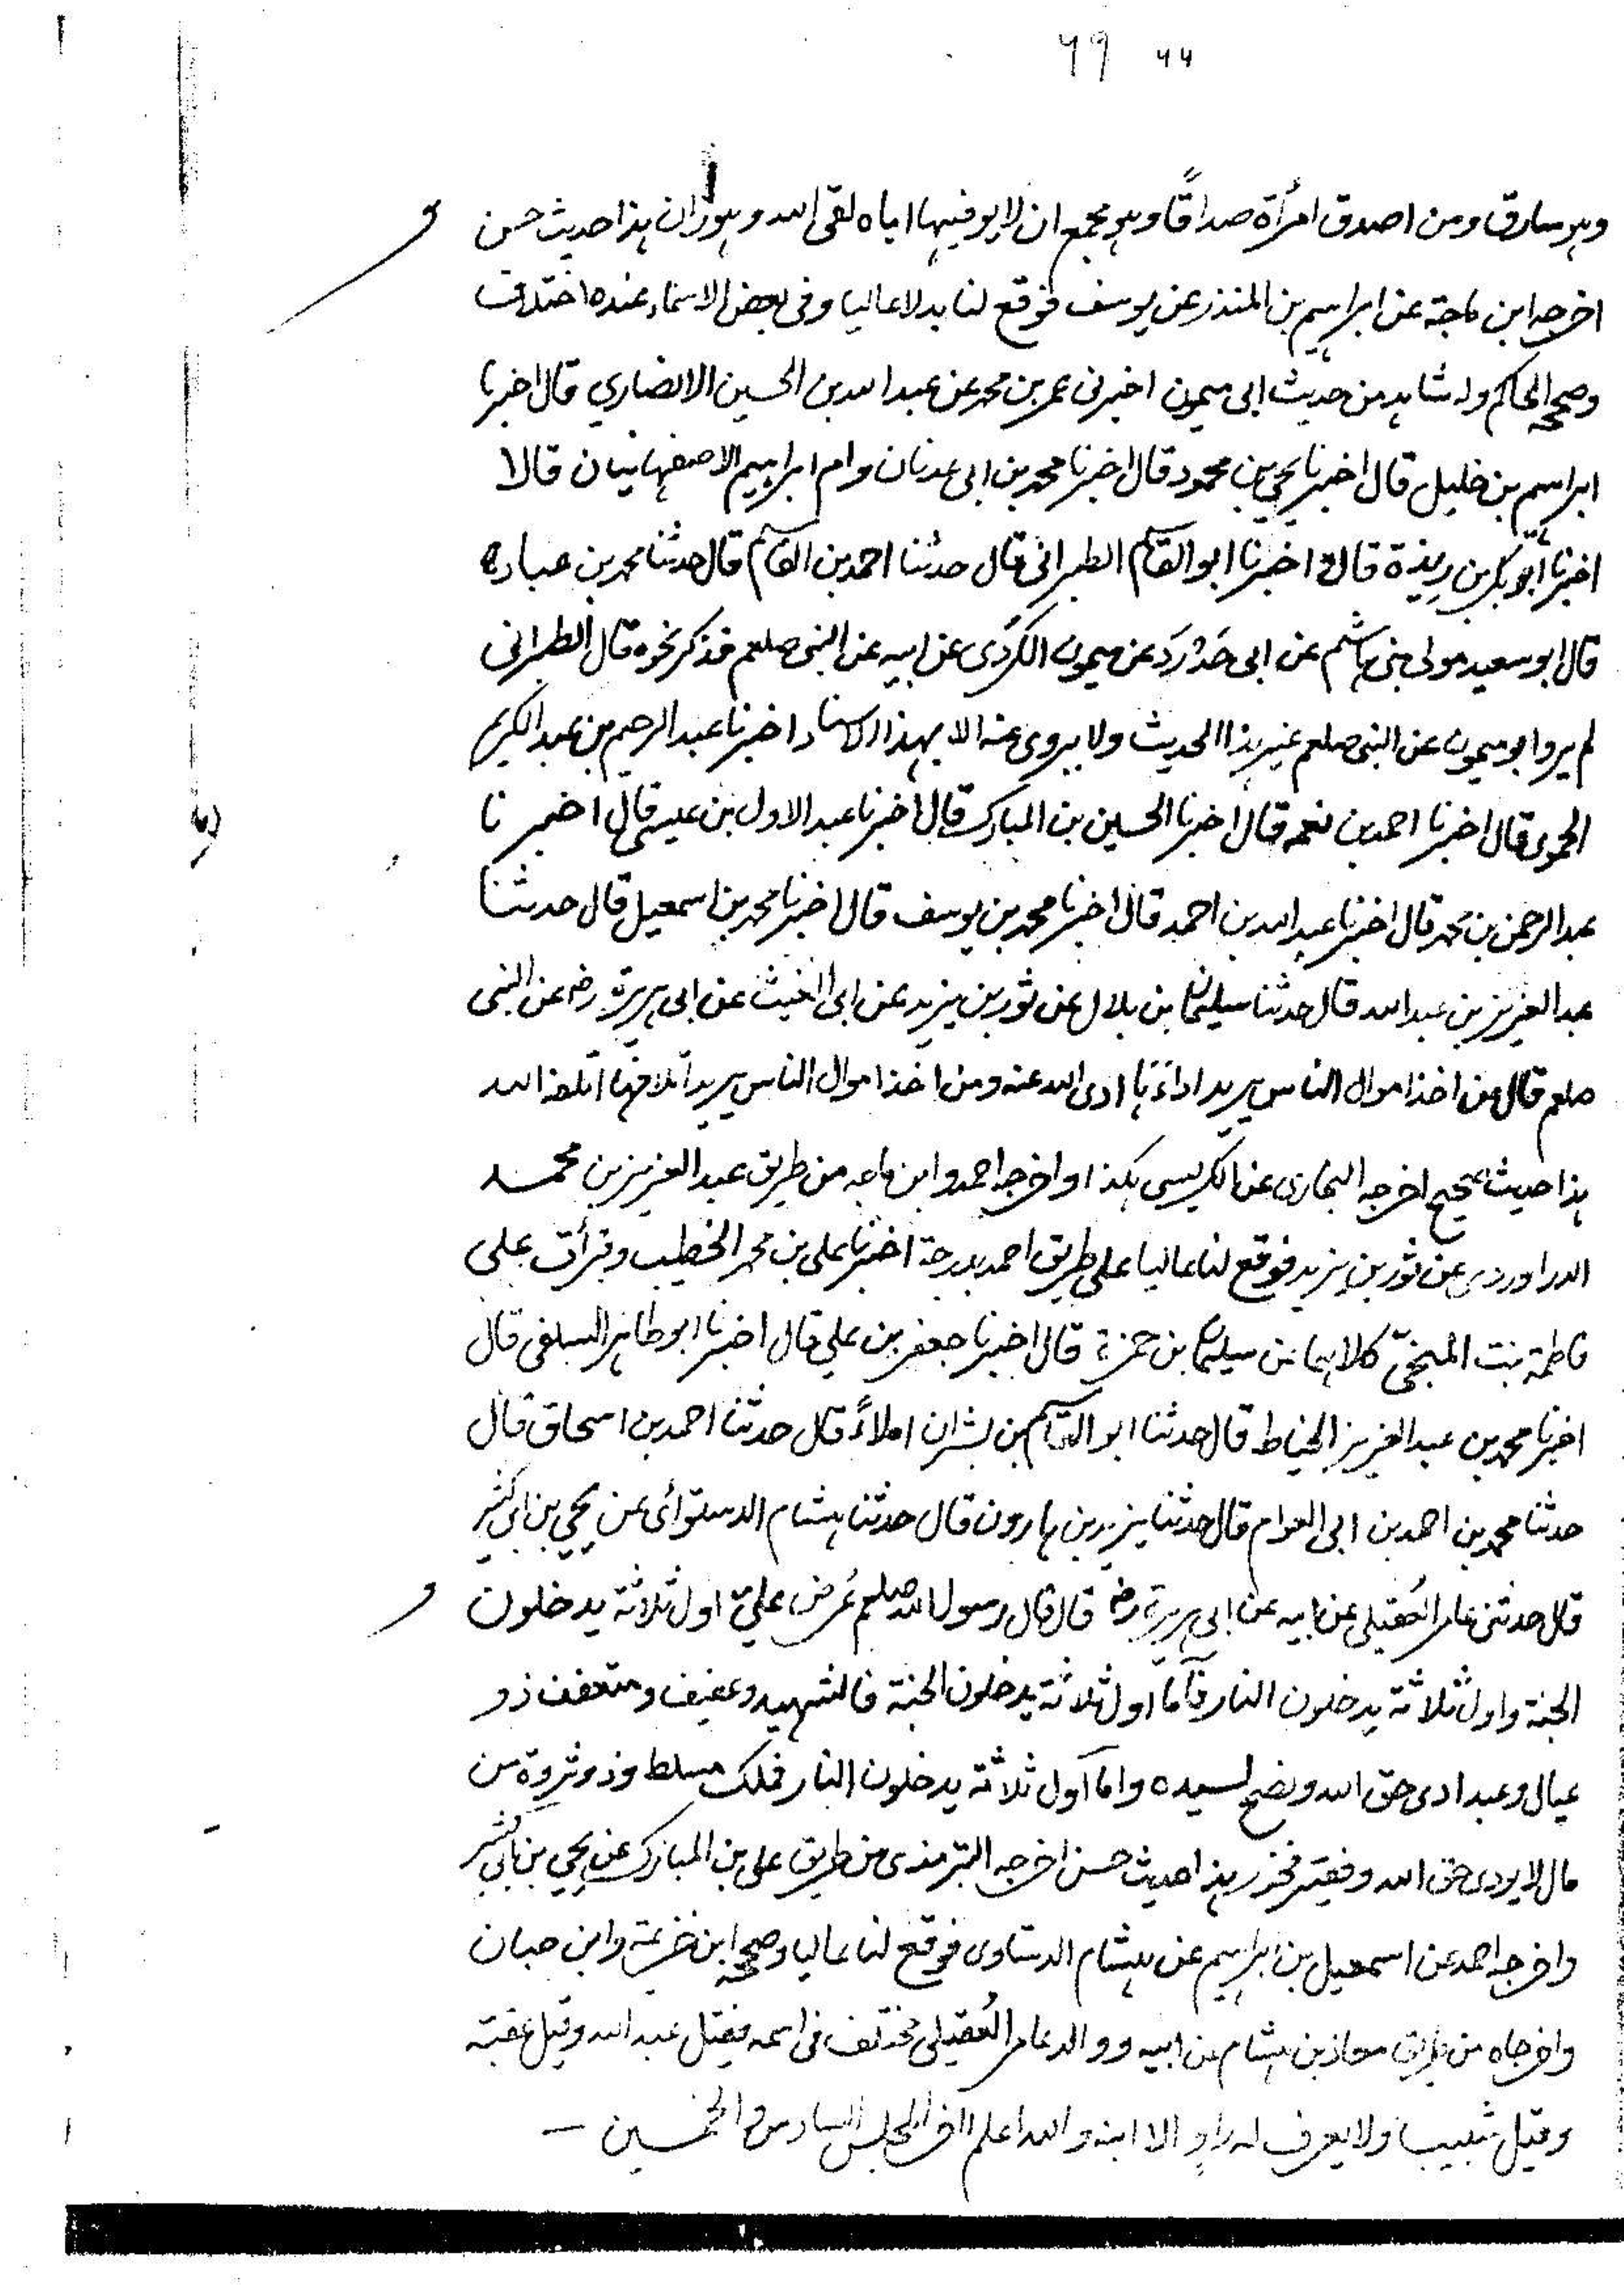 ۶۹ ۶۶
وهو سارق ومن اصدق امرأة صداقًا وهو مجمع ان لا يوفيها اياه لقى الله وهو زان هذا حديث حسن
اخرجه ابن ماجة عن ابراهيم بن المنذر عن يوسف فوقع لنا بدلا عاليا وفى بعض الاسماء عنده اختلاف
وصححه الحاكم وله شاهد من حديث ابى ميمون اخبرنى عمر بن محمد عن عبد الله بن الحسين الانصاري قال اخبرنا
ابراهيم بن خليل قال اخبرنا يحيى بن محمود قال اخبرنا محمد بن ابى عدنان وام ابراهيم الاصفهانيان قالا
اخبرنا ابو بكر بن ريذة قال اخبرنا ابو القاسم الطبرانى قال حدثنا احمد بن القاسم قال حدثنا محمد بن عباده
قال ابو سعيد مولى بنى هاشم عن ابى خَلْدَة عن ميمون الكردى عن ابيه عن النبى صلعم فذكر نحوه قال الطبرانى
لم يرو ابو ميمون عن النبى صلعم غير هذا الحديث ولا يروى عنه الا بهذا الاسناد اخبرنا عبد الرحيم بن عبد الكريم
الحموى قال اخبرنا احمد بن نعمه قال اخبرنا الحسين بن المبارك قال اخبرنا عبد الاول بن عيسى قال اخبرنا
عبد الرحمن بن محمد قال اخبرنا عبد الله بن احمد قال اخبرنا محمد بن يوسف قال اخبرنا محمد بن اسمعيل قال حدثنا
عبد العزيز بن عبد الله قال حدثنا سليمان بن بلال عن ثور بن يزيد عن ابى الغيث عن ابى هريرة رضـ عن النبى
صلعم قال من اخذ اموال الناس يريد اداءَها ادى الله عنه ومن اخذ اموال الناس يريد اتلافها اتلفه الله
هذا حديث صحيح اخرجه البخارى عن الاويسى هكذا واخرجه احمد وابن ماجه من طريق عبد العزيز بن محمد
الدراوردى عن ثور بن يزيد فوقع لنا عاليا على طريق احمد بدرجة اخبرنا على بن محمد الخطيب وقرأت على
فاطمة بنت المنجى كلاهما عن سليمان بن حمزة قال اخبرنا جعفر بن علي قال اخبرنا ابو طاهر السلفى قال
اخبرنا محمد بن عبد العزيز الخياط قال حدثنا ابو القاسم بن بشران املاءً قال حدثنا احمد بن اسحاق قال
حدثنا محمد بن احمد بن ابى العوام قال حدثنا يزيد بن هارون قال حدثنا هشام الدستوائى عن يحيى بن ابى كثير
قال حدثنى عامر العُقيلى عن ابيه عن ابى هريرة رضـ قال قال رسول الله صلعم عُرض عليّ اول ثلاثة يدخلون
الجنة واول ثلاثة يدخلون النار فأما اول ثلاثة يدخلون الجنة فالشهيد وعفيف ومتعفف ذو
عيال وعبد ادى حق الله ونصح لسيده واما اول ثلاثة يدخلون النار فملك مسلط وذو ثروة من
مال لا يودى حق الله وفقير فخور هذا حديث حسن اخرجه الترمذى من طريق على بن المبارك عن يحيى بن ابى كثير
واخرجه احمد عن اسمعيل بن ابراهيم عن هشام الدستاوى فوقع لنا عاليا وصححه ابن خزيمة وابن حبان
واخرجاه من طريق معاذ بن هشام عن ابيه ووالد عامر العُقيلى مختلف فى اسمه فقيل عبد الله وقيل عقبة
وقيل شبيب ولا يعرف له راوٍ الا ابنه والله اعلم آخر المجلس السادس والخمسين –